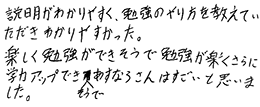 説明がわかりやすく、勉強のやり方を教えていただきわかりやすかった。
楽しく勉強ができそうで勉強が楽くさらに
学力アップできそうであすなろさんはすごいと思いました。